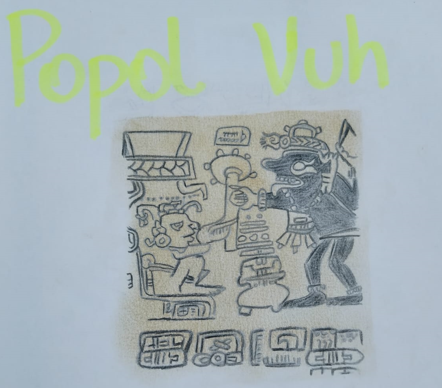 Popol Vuh